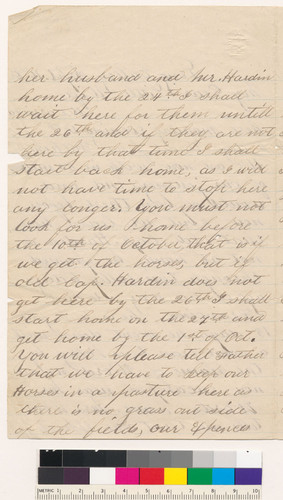 her husband and Mr. Hardin
home by the 24th I shall
wait here for them untill
the 26th and if they are not
here by that time I shall
start back home, as I will
not have time to stop here
any longer. You must not
look for us home before
the 10th of October that is if
we get the horses, but if
old Cap. Hardin does not
get here by the 26th I shall
start home on the 27th and
get home by the 1st of Oct.
You will please tell Father
that we have to keep our
Horses in a pasture here as
there is no grass out side
of the fields, our Expences
METRIC 1 2 3 4 5 6 7 8 9 10